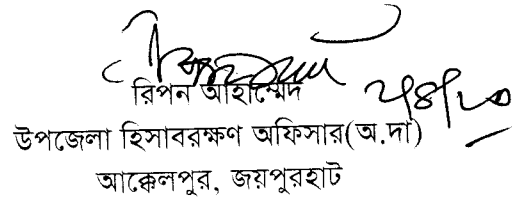 রিপন আহাম্মেদ
উপজেলা হিসাবরক্ষণ অফিসার(অ.দা)
আক্কেলপুর, জয়পুরহাট